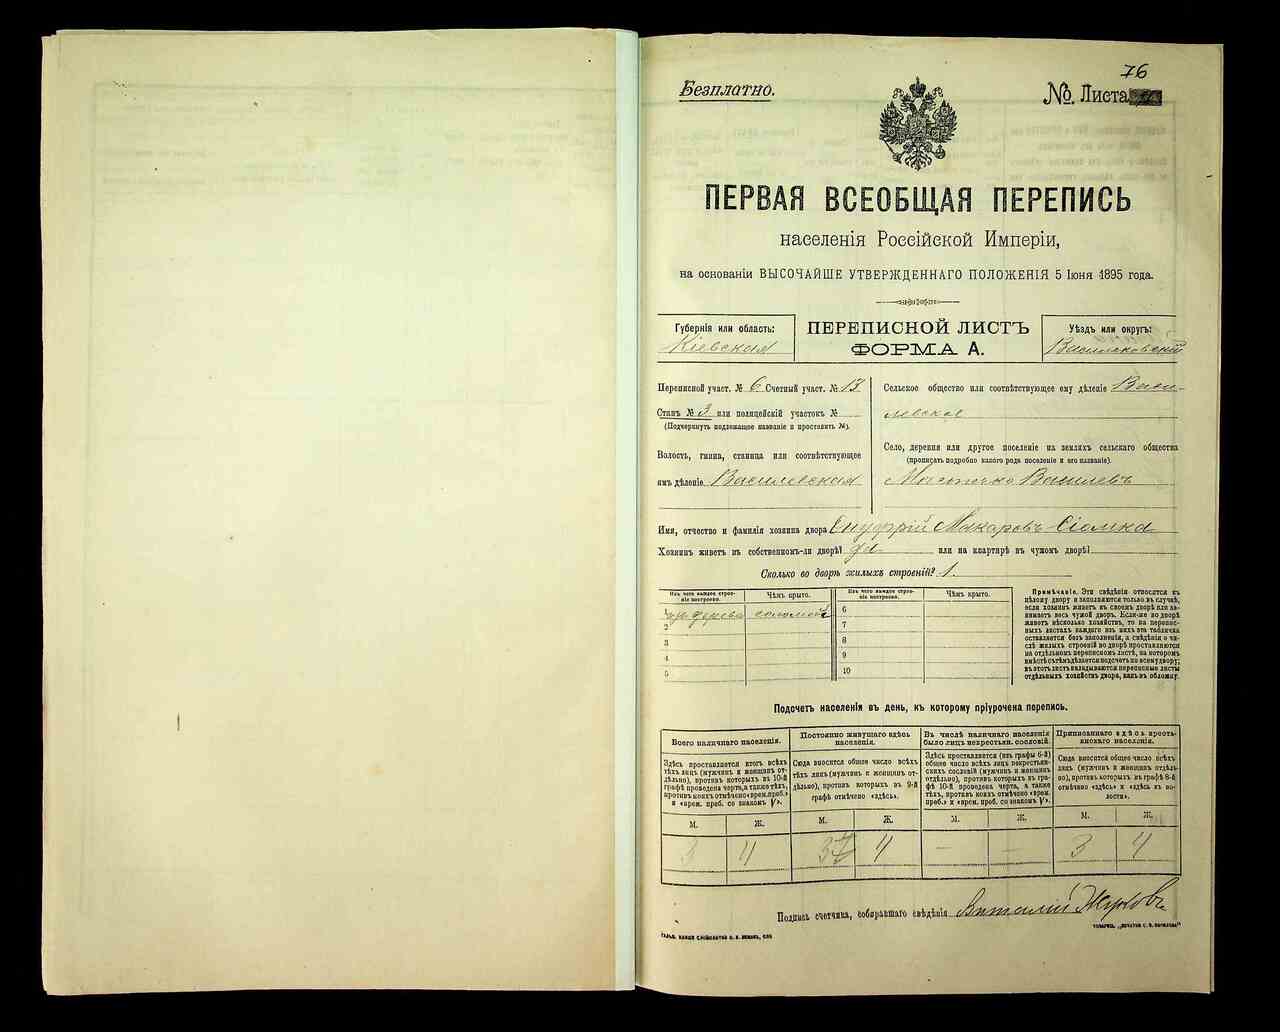 76
Безплатно.
№. Листа
ПЕРВАЯ ВСЕОБЩАЯ ПЕРЕПИСЬ
населенія Россійской Имперіи,
на основаніи ВЫСОЧАЙШЕ УТВЕРЖДЕННАГО ПОЛОЖЕНІЯ 5 Іюня 1895 года.
Губернія или область:
Кіевская
ПЕРЕПИСНОЙ ЛИСТЪ
ФОРМА А.
Уѣздъ или округъ:
Васильковскій
Переписной участ. № 6 Счетный участ. № 13
Станъ № 3 или полицейскій участокъ №
(Подчеркнуть подлежащее названіе и проставить №).
Волость, гмина, станица или соотвѣтствующее
имъ дѣленіе Василевская
Сельское общество или соотвѣтствующее ему дѣленіе Васи-
левское
Село, деревня или другое поселеніе на земляхъ сельскаго общества
(прописать подробно какого рода поселеніе и его названіе).
Василевъ
Имя, отчество и фамилія хозяина двора Онуфрій Макаровъ Сіомка
Хозяинъ живетъ въ собственномъ-ли дворѣ? да или на квартирѣ въ чужомъ дворѣ?
Сколько во дворѣ жилыхъ строеній? 1.
Изъ чего каждое строе-
ніе построено.
Чѣмъ крыто.
Изъ чего каждое строе-
ніе построено.
Чѣмъ крыто.
изъ дерева соломой
6
2
7
3
8
4
9
5
10
Примѣчаніе. Эти свѣдѣнія относятся къ
цѣлому двору и заполняются только въ случаѣ,
если хозяинъ живетъ въ своемъ дворѣ или за-
нимаетъ весь чужой дворъ. Если-же во дворѣ
живетъ нѣсколько хозяйствъ, то на перепис-
ныхъ листахъ каждаго изъ нихъ эта табличка
оставляется безъ заполненія, а свѣдѣнія о чи-
слѣ жилыхъ строеній во дворѣ проставляются
на отдѣльномъ переписномъ листѣ, на которомъ
вмѣстѣ съ тѣмъ дѣлается подсчетъ по всему двору;
въ этотъ листъ вкладываются переписные листы
отдѣльныхъ хозяйствъ двора, какъ въ обложку.
Подсчетъ населенія въ день, къ которому пріурочена перепись.
Всего наличнаго населенія.
Здѣсь проставляется итогъ всѣхъ
тѣхъ лицъ (мужчинъ и женщинъ от-
дѣльно), противъ которыхъ въ 10-й
графѣ проведена черта, а также тѣхъ,
противъ коихъ отмѣчено «врем. преб.»
и «врем. преб. со знакомъ V».
Постоянно живущаго здѣсь
населенія.
Сюда вносится общее число всѣхъ
тѣхъ лицъ (мужчинъ и женщинъ от-
дѣльно), противъ которыхъ въ 9-й
графѣ отмѣчено «здѣсь».
Въ числѣ наличнаго населенія
было лицъ некрестьян. сословій.
Здѣсь проставляется (изъ графы 6-й)
общее число всѣхъ лицъ некрестьян-
скихъ сословій (мужчинъ и женщинъ
отдѣльно), противъ которыхъ въ гра-
фѣ 10-й проведена черта, а также
тѣхъ, противъ коихъ отмѣчено «врем.
преб.» и «врем. преб. со знакомъ V».
Приписаннаго здѣсь кресть-
янскаго населенія.
Сюда вносится общее число всѣхъ
лицъ (мужчинъ и женщинъ отдѣль-
но), противъ которыхъ въ графѣ 8-й
отмѣчено «здѣсь» и «здѣсь въ во-
лости».
М. Ж. М. Ж. М. Ж. М. Ж.
3 4 3 4 – – 3 4
Подпись счетчика, собиравшаго свѣдѣнія Виталій